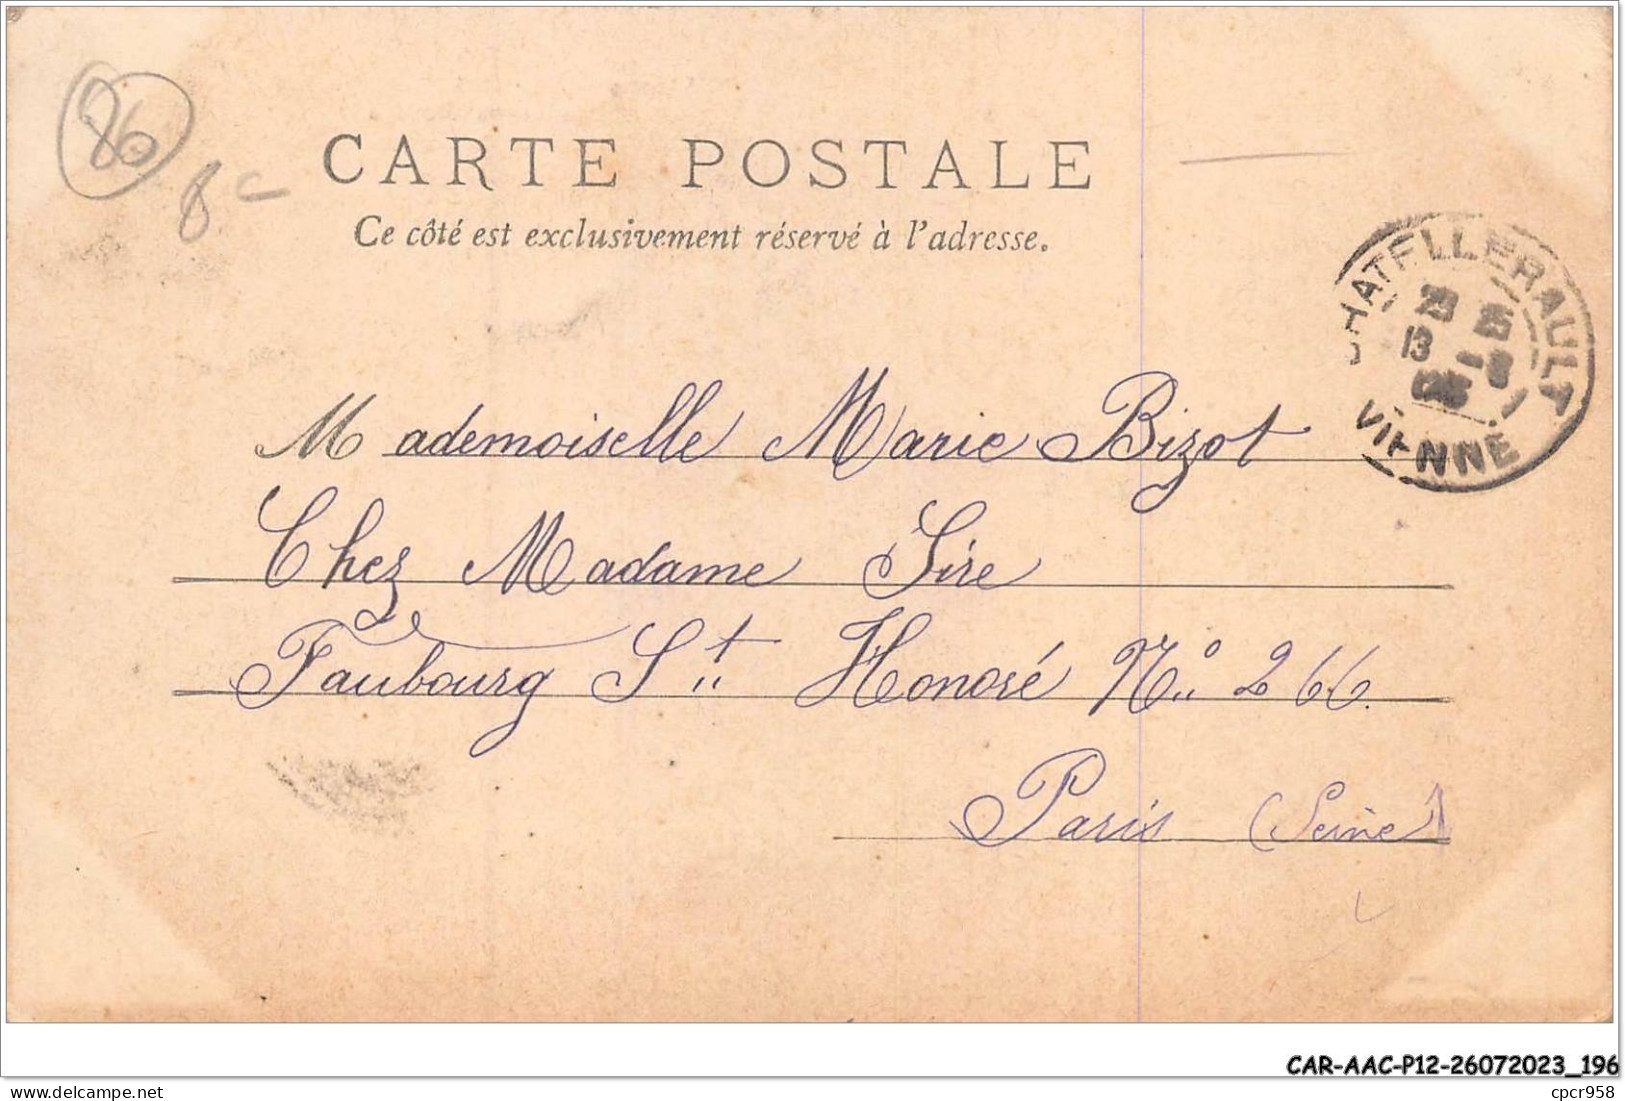 86
8
CARTE POSTALE
Ce côté est exclusivement réservé à l'adresse.
CHATELLERAULT
13
VIENNE
Mademoiselle Marie Bizot
Chez Madame Sire
Faubourg St. Honoré No. 266.
Paris (Seine)
CAR-AAC-P12-26072023_196
cpcr958